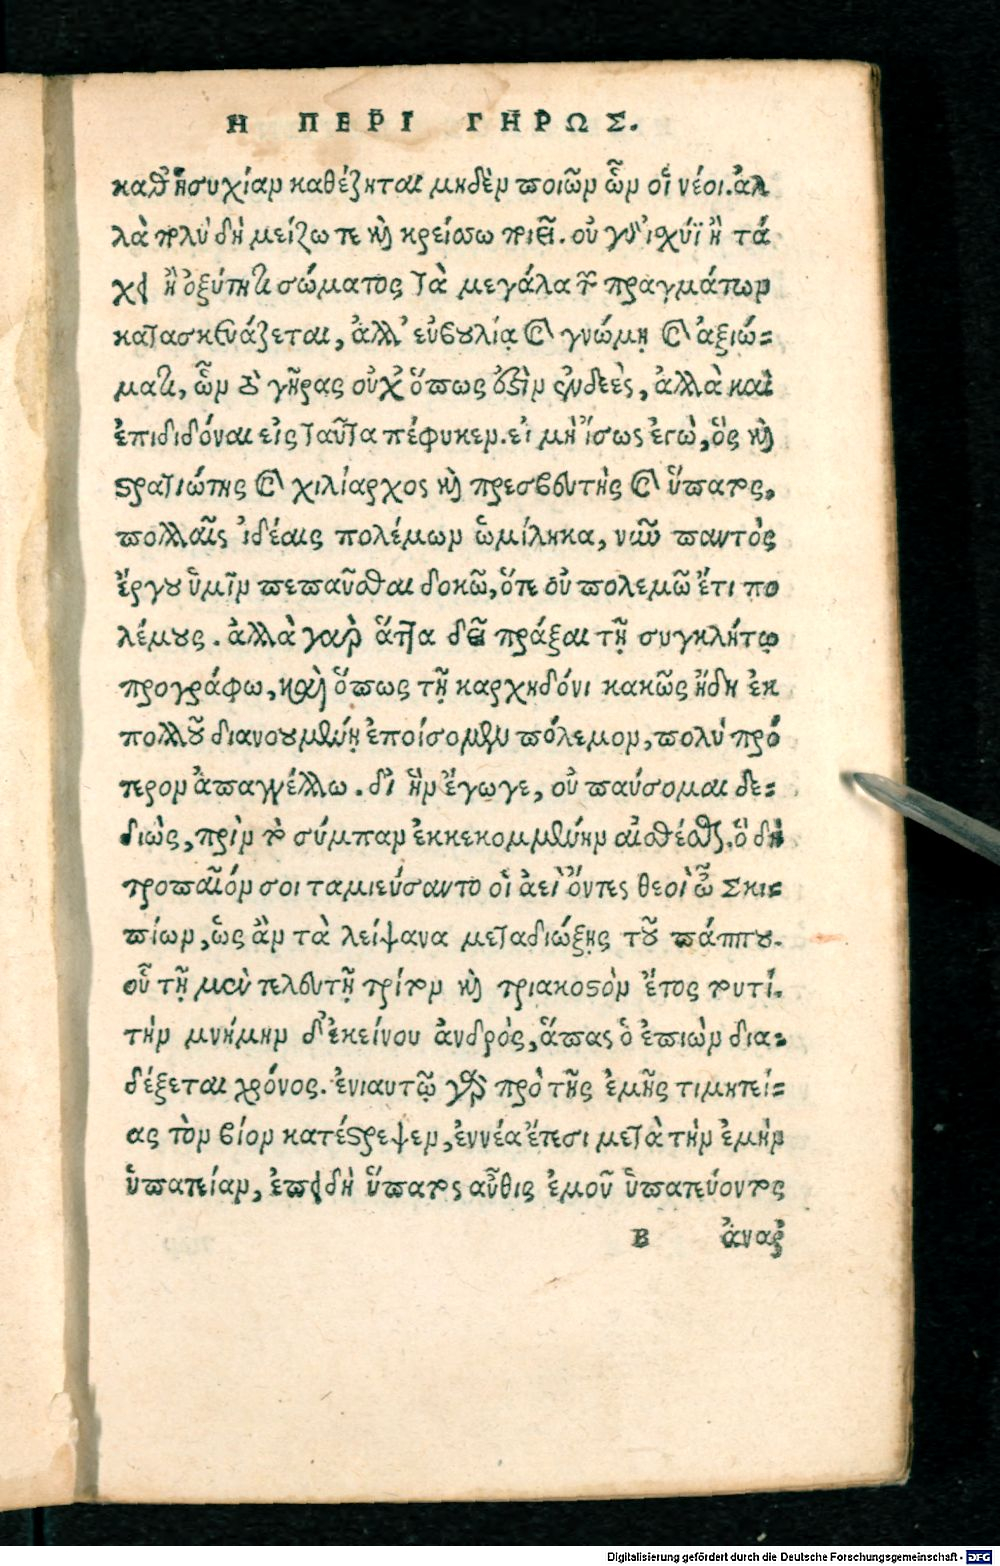 Η ΠΕΡΙ ΓΗΡΩΣ.
καθ' ἡσυχίαν καθέζηται μηδὲν ποιῶν ὧν οἱ νέοι. ἀλ
λὰ πλὺ δὴ μείζω τε καὶ κρείσσω ποιεῖ. οὐ γὰρ ἰσχύϊ ἢ τά
χει ἢ ὀξύτητι σώματος τὰ μεγάλα τῶν πραγμάτων
κατασκευάζεται, ἀλλ' εὐβουλίᾳ καὶ γνώμῃ καὶ ἀξιώ-
ματι, ὧν τὸ γῆρας οὐχ ὅπως ἐστὶν ἐνδεὲς, ἀλλὰ καὶ
ἐπιδιδόναι εἰς ταῦτα πέφυκεν. εἰ μὴ ἴσως ἐγὼ, ὃς καὶ
στρατιώτης καὶ χιλίαρχος καὶ πρεσβευτὴς καὶ ὕπατος,
πολλαῖς ἰδέαις πολέμων ὡμίληκα, νῦν παντὸς
ἔργου ὑμῖν πεπαῦσθαι δοκῶ, ὅτε οὐ πολεμῶ ἔτι πο
λέμους. ἀλλὰ γὰρ ἅττα δεῖ πράξαι τῇ συγκλήτῳ
προγράφω, καὶ ὅπως τῇ καρχηδόνι κακῶς ἤδη ἐκ
πολλοῦ διανουμένῃ ἐποίσομεν πόλεμον, πολὺ πρό
τερον ἀπαγγέλλω. δι' ἣν ἔγωγε, οὐ παύσομαι δε-
διὼς, πρὶν τὸ σύμπαν ἐκκεκομμένην αἰσθέσθαι. ὃ δὴ
τροπαῖόν σοι ταμιεύσαντο οἱ ἀεὶ ὄντες θεοὶ ὦ Σκι-
πίων, ὡς ἂν τὰ λείψανα μεταδιώξῃς τοῦ πάππου.
οὗ τῇ μὲν τελευτῇ τρίτον καὶ τριακοστὸν ἔτος τουτί.
τὴν μνήμην δ' ἐκείνου ἀνδρὸς, ἅπας ὁ ἐπιὼν δια-
δέξεται χρόνος. ἐνιαυτῷ γὰρ πρὸ τῆς ἐμῆς τιμητεί-
ας τὸν βίον κατέστρεψεν, ἐννέα ἔτεσι μετὰ τὴν ἐμὴν
ὑπατείαν, ἐπειδὴ ὕπατος αὖθις ἐμοῦ ὑπατεύοντος
B ἀναρ
Digitalisierung gefördert durch die Deutsche Forschungsgemeinschaft - DFG